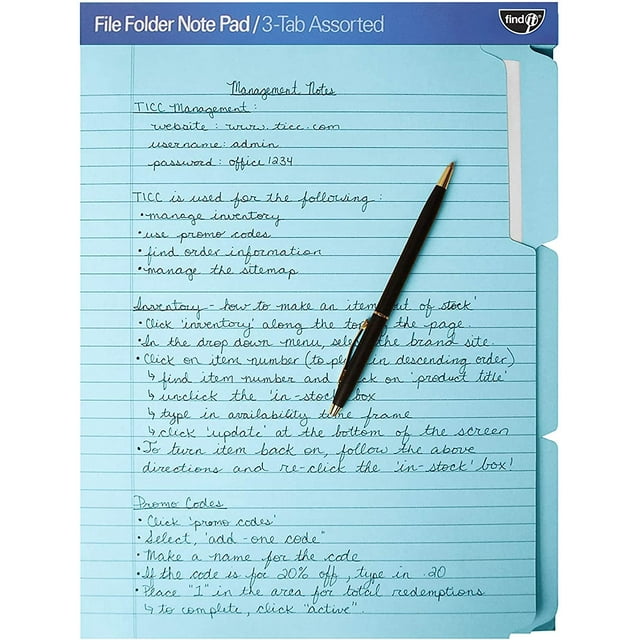 File Folder Note Pad / 3-Tab Assorted
find it
Management Notes
TICC Management:
website: www.ticc.com
username: admin
password: office1234
TICC is used for the following:
• manage inventory
• use promo codes
• find order information
• manage the sitemap
Inventory - how to make an item out of stock'
• Click 'inventory' along the top the page.
• In the drop down menu, the brand site.
• Click on item number (to in descending order)
↳ find item number and on 'product title'
↳ unclick the 'in-stock' box
↳ type in availability time frame
↳ click 'update' at the bottom of the screen
• To turn item back on, follow the above
directions and re-click the 'in-stock' box!
Promo Codes
• Click 'promo codes'
• Select, 'add-one code"
• Make a name for the code
• If the code is for 20% off, type in .20
• Place "1" in the area for total redemptions
↳ to complete, click "active".